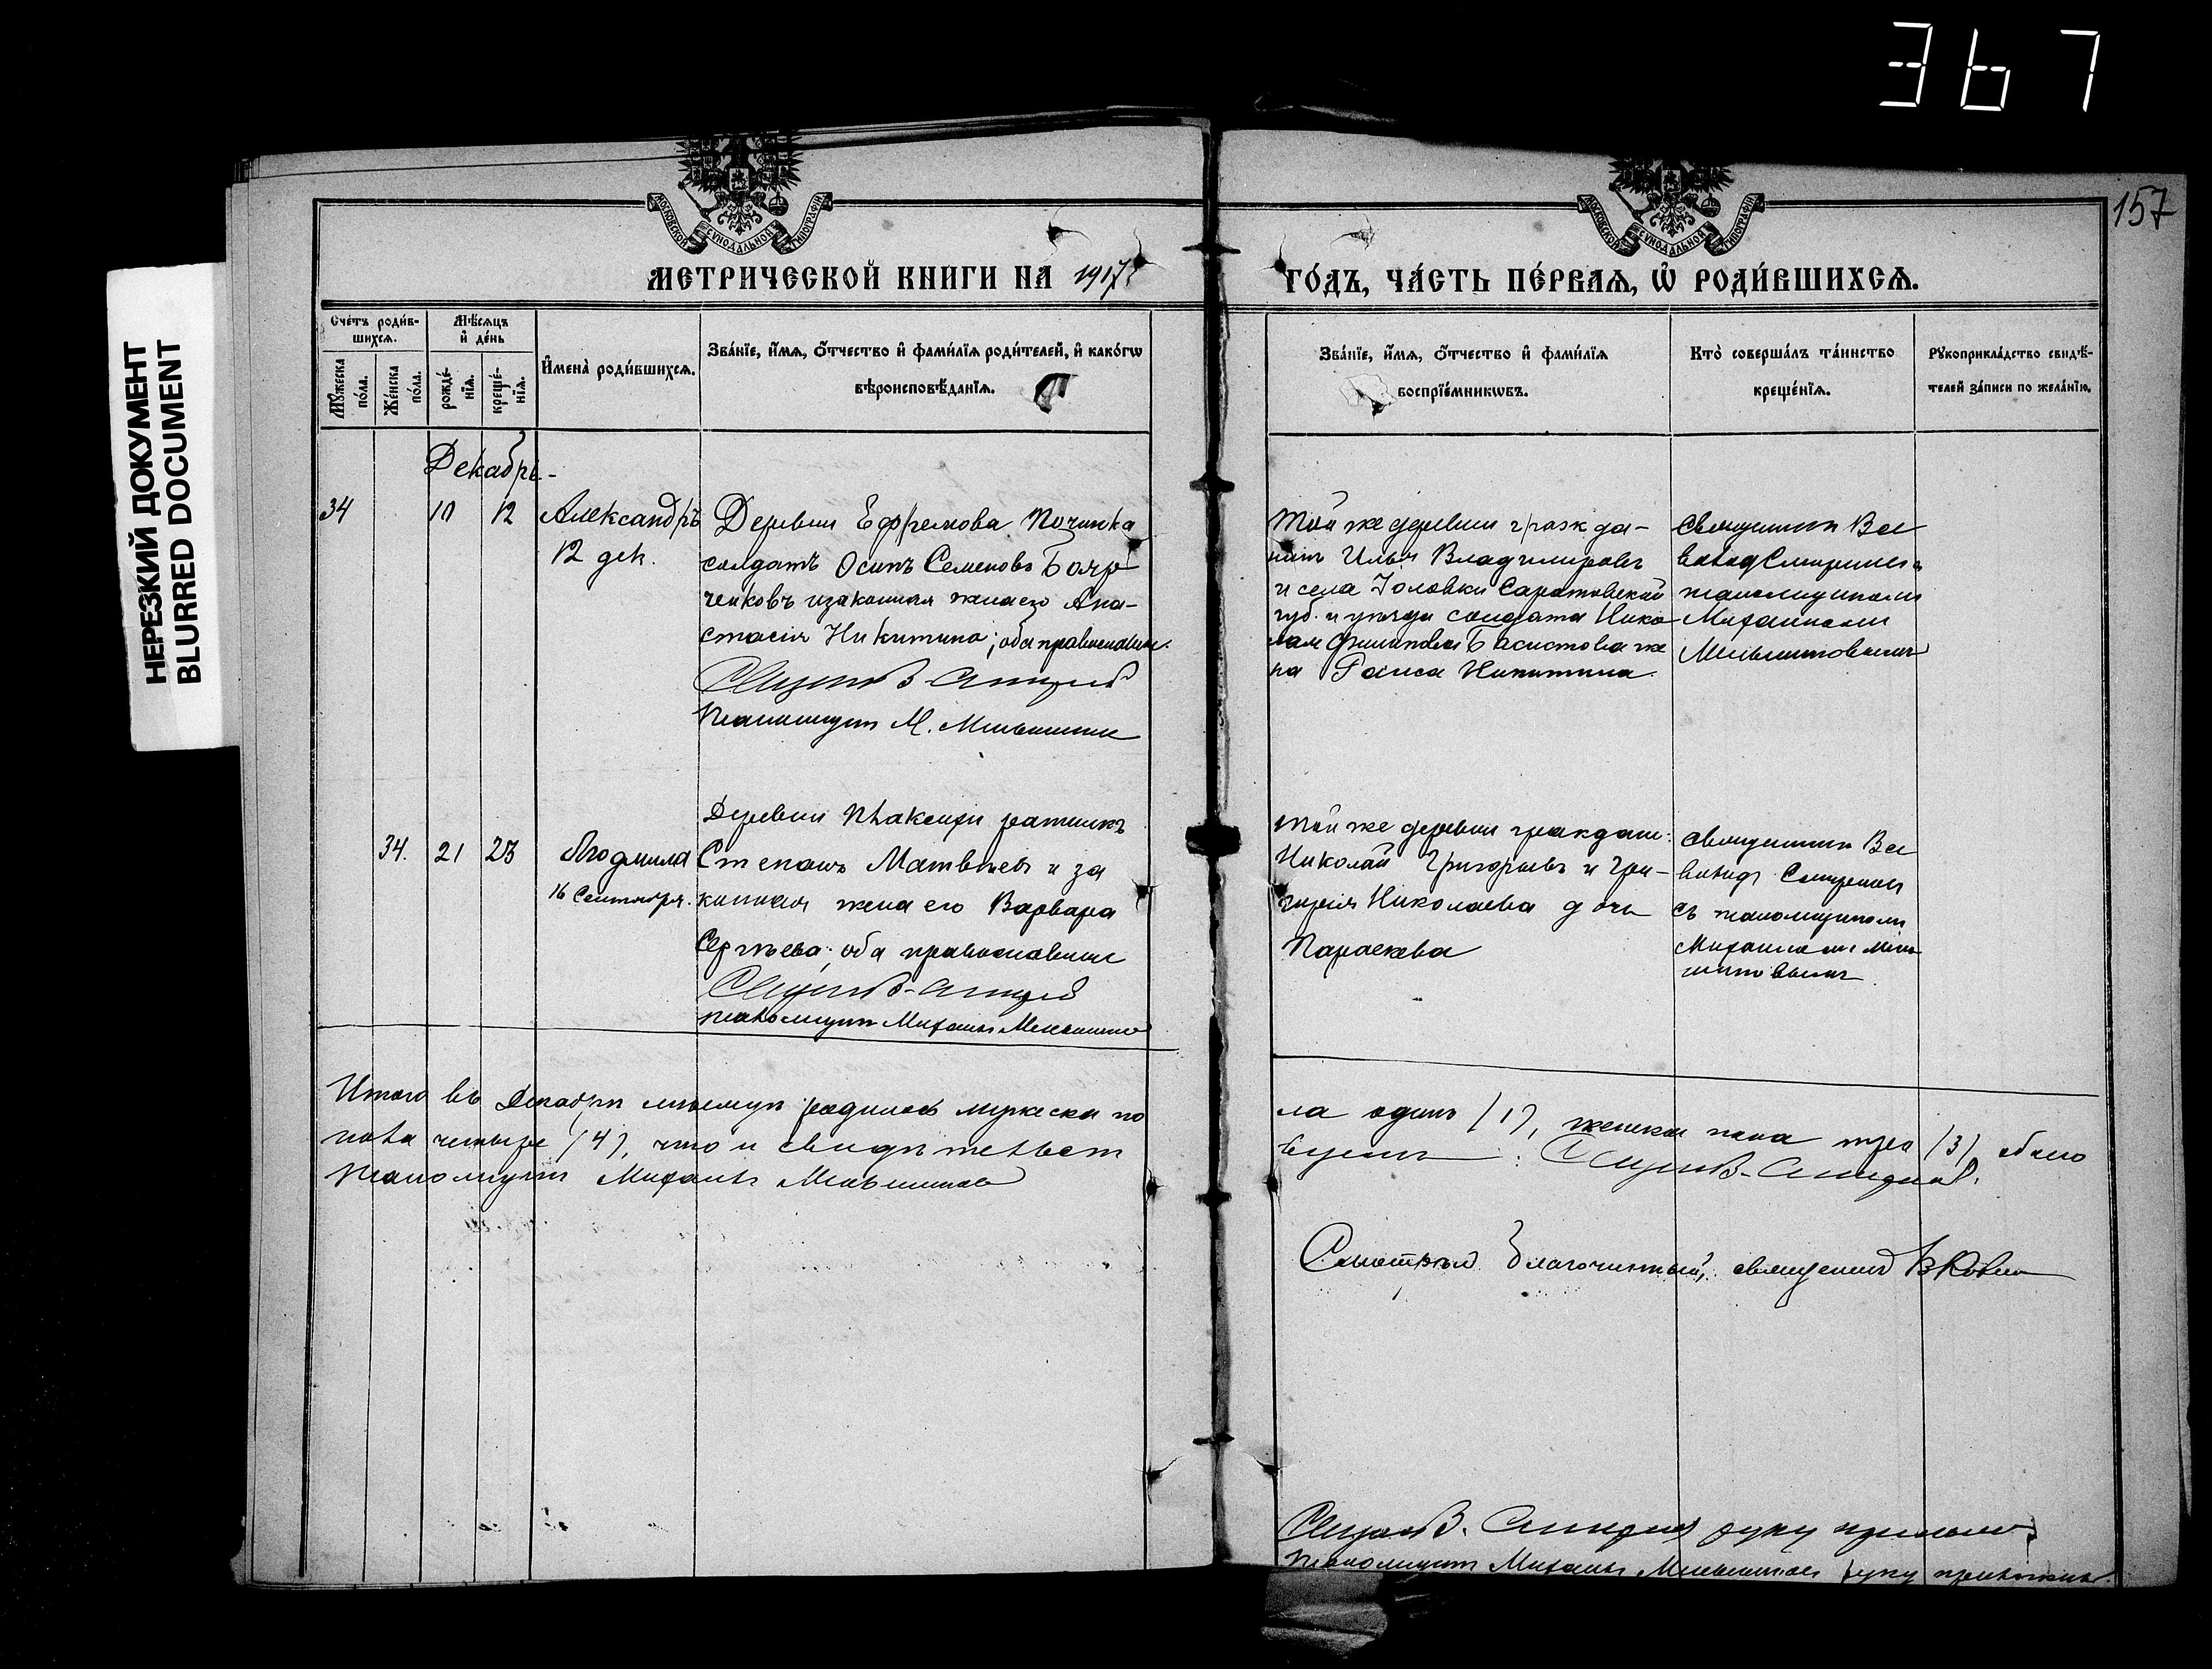 367
157
НЕРЕЗКИЙ ДОКУМЕНТ
BLURRED DOCUMENT
МОСКОВСКОЙ СУНОДАЛЬНОЙ ТИПОГРАФІИ
МОСКОВСКОЙ СУНОДАЛЬНОЙ ТИПОГРАФІИ
МЕТРИЧЕСКОЙ КНИГИ НА 1917
ГО́ДЪ, ЧА́СТЬ ПЕ́РВАЯ, Ѡ҆ РОДИ́ВШИХСЯ.
Сче́тъ роди́в-
шихся.
Мѣ́сяцъ
и҆ де́нь
Мꙋ́жеска
по́ла.
Же́нска
по́ла.
рожде́-
нїя.
креще́-
нїя.
И҆мена̀ роди́вшихся.
Зва́нїе, и҆́мя, ѻ҆́тчество и҆ фами́лїя роди́телей, и҆ како́гѡ
вѣроисповѣ́данїя.
Зва́нїе, и҆́мя, ѻ҆́тчество и҆ фами́лїя
воспрїе́мникѡвъ.
Кто̀ соверша́лъ та́инство
креще́нїя.
Рꙋкоприкла́дство свидѣ́-
телей за́писи по жела́нїю.
Декабрь
34 10 12 Александръ
12 дек.
Деревни Ефремова Починка
солдатъ Осипъ Семеновъ Бояр
ченковъ и законная жена его Ана-
стасія Никитина; оба православные.
Псаломщикъ М. Меньшиковъ
Той же деревни гражда-
нинъ Илья Владимировъ
и села Головки Саратовской
губ. и уѣзда солдата Нико
лая Филипова Басистова же
на Раиса Никитина.
Священникъ Все
волод
псаломщикомъ
Михаиломъ
34. 21 23 Людмила
16 Сентября.
Деревни ратникъ
Степанъ Матвѣевъ и за
конная жена его Варвара
Сергѣева; оба православные
псаломщикъ Михаилъ Меньшиковъ
Той же деревни граждан.
Николай Григорьевъ и Гри-
горія Николаева дочь
Параскева
Священникъ Все
волод
съ псаломщикомъ
Михаиломъ
Итого въ Декабрѣ мѣсяцѣ родилось мужеска по
ла одинъ (1), женска пола три (3), обоего
пола четыре (4), что и свидѣтельст
вуемъ:
Псаломщикъ Михаилъ Меньшиковъ
Смотрѣлъ Благочинный, священникъ
руку приложилъ
Псаломщикъ Михаилъ Меньшиковъ руку приложилъ.